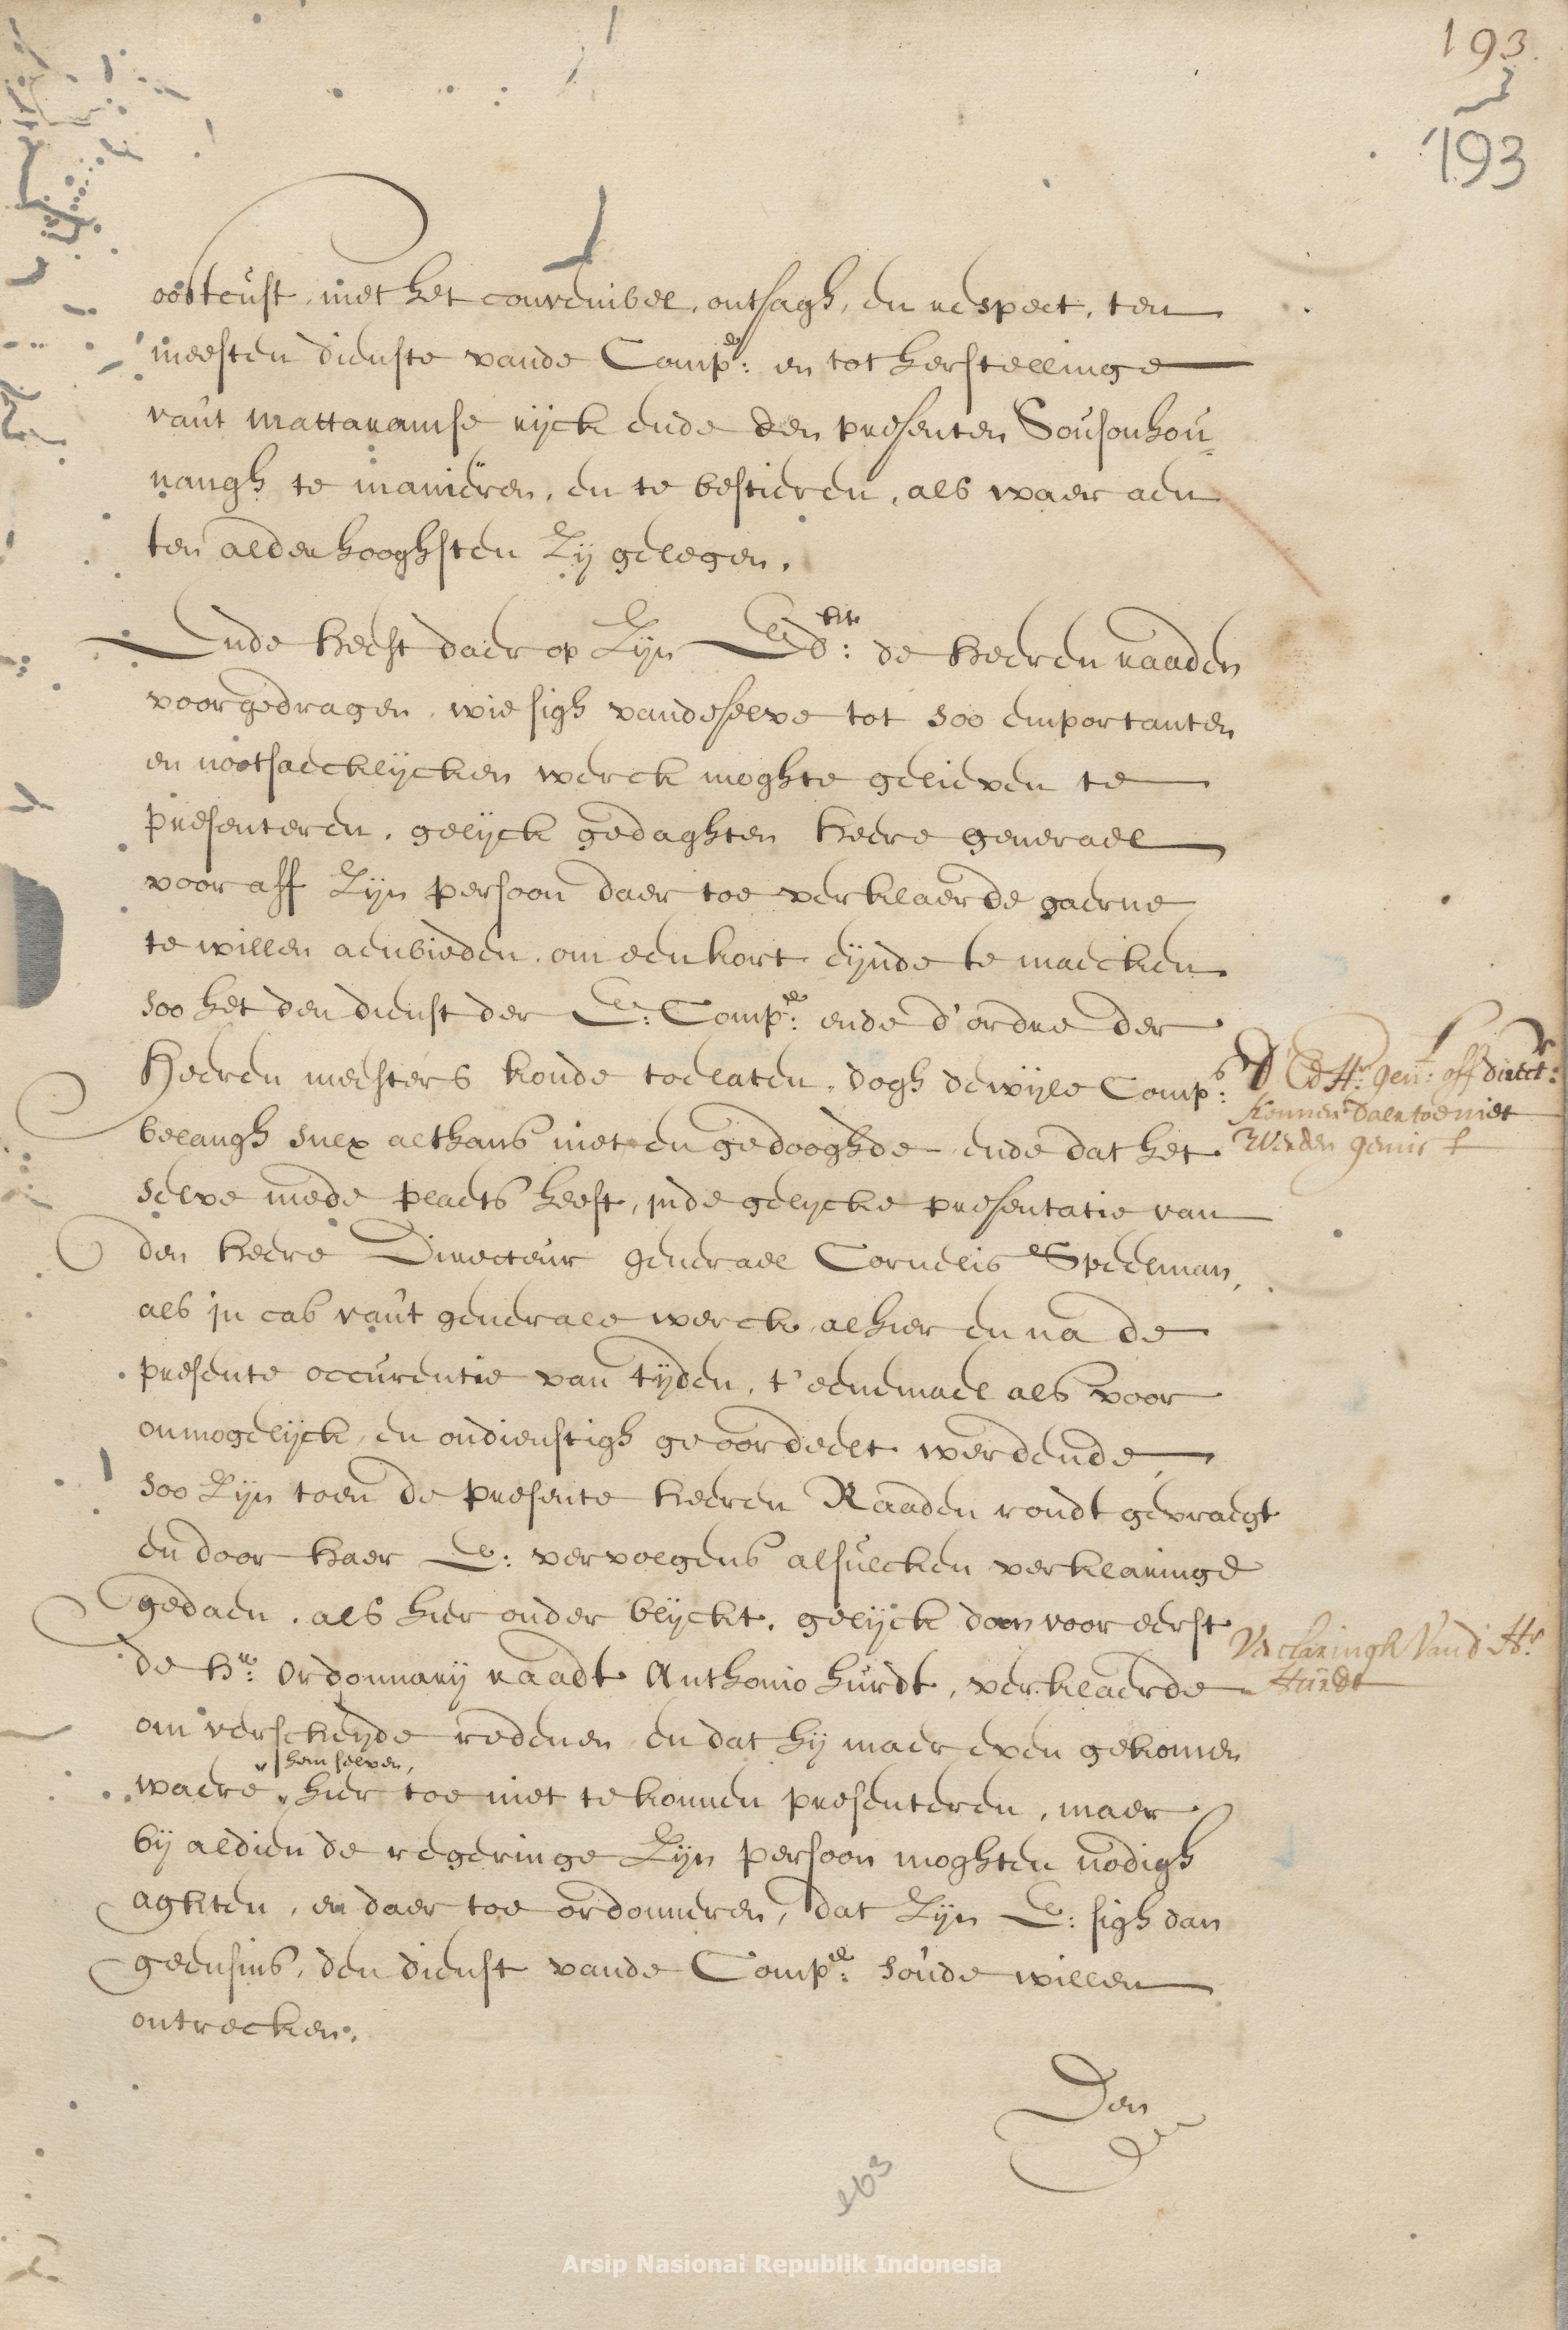 193.
193
oostcust, met het convenibel, ontsagh, en respect, ten
meesten dienste vande Compe: en tot herstellinge
vaut mattaramse rijck ende den presenten Sousouhou„
nangh te maniëren, en te bestieren, als waer aen
ten alderhooghsten Zij gelegen.
Ende heeft daer op Zijn Edht: de heeren raaden
voorgedragen, wie sigh vandeselve tot soo emportanten
en nootsaecklijcken werck moghte gelieven te
presenteren, gelijck gedaghten heere generael
voor aff Zijn persoon daer toe verklaerde gaerne
te willen aenbieden, om een kort eijnde te maecken
soo het den dienst der E: Compe: ende d'ordre der
Heeren meesters konde toelaten, dogh dewijle Comps:
belangh sulx althans niet en gedooghde ende dat het
selve mede plaets heeft, inde gelijcke presentatie van
den heere Directeur generael Cornelis Speelman,
als in cas vaut generale werck, alhier en na de
presente occurentie van tijden, t'eenemael als voor
onmogelijck, en ondienstigh geoordeelt werdende,
soo Zijn toen de presente heeren Raaden rondt gevraegt
en door haer E: vervolgens alsulcken verklaringe
gedaen, als hier onder blijckt, gelijck dan voor eerst
de hr: ordonnarij raadt Anthonio hurdt, verklaerde
om verscheijde redenen, en dat hij maer even gekomen
hem selven,
waere, hier toe niet te konnen presenteren, maer
bij aldien de regeringe Zijn persoon moghten nodigh
aghten, en daer toe ordonneren, dat Zijn E: sigh dan
geensins, den dienst vande Compe: soude willen
ontrecken.
Den
d' Ed Hr. gen: off direct:
konnen daer toe niet
werden gemist
Verclaringh Vand Hr.
Hurdt
163
Arsip Nasional Republik Indonesia